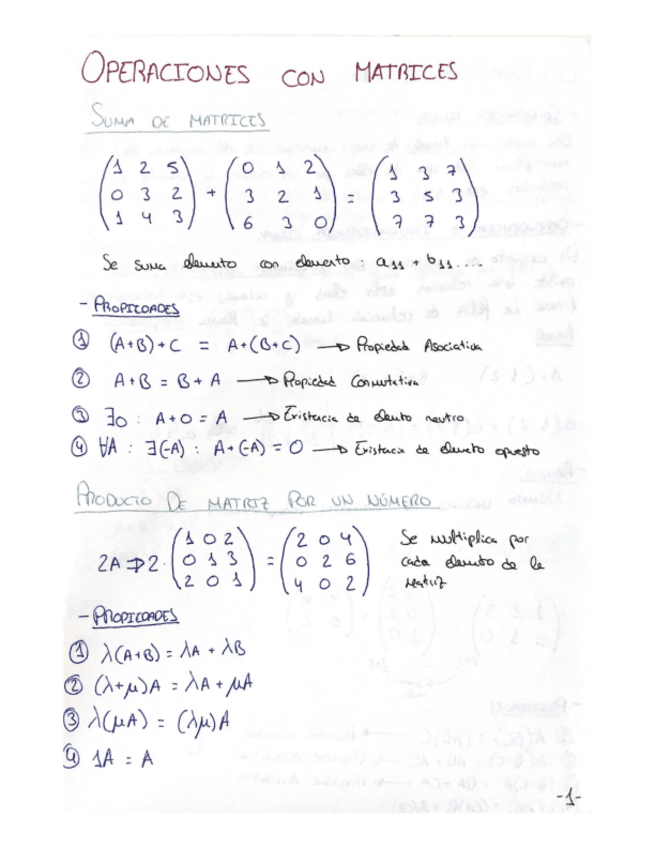 OPERACIONES CON MATRICES
SUMA DE MATRICES
(1 2 5) (0 1 2) (1 3 7)
(0 3 2) + (3 2 1) = (3 5 3)
(1 4 3) (6 3 0) (7 7 3)
Se suma elemento con elemento: a₁₁ + b₁₁ ....
- PROPIEDADES
① (A+B)+C = A+(B+C) → Propiedad Asociativa
② A+B = B+A → Propiedad Conmutativa
③ ∃0 : A+0 = A → Existencia de elemento neutro
④ ∀A : ∃(-A) : A+(-A) = 0 → Existencia de elemento opuesto
PRODUCTO DE MATRIZ POR UN NÚMERO
(1 0 2) (2 0 4) Se multiplica por
2A ⇒ 2· (0 1 3) = (0 2 6) cada elemento de la
(2 0 1) (4 0 2) matriz
- PROPIEDADES
① λ(A+B) = λA + λB
② (λ+μ)A = λA + μA
③ λ(μA) = (λμ)A
④ 1A = A
-1-